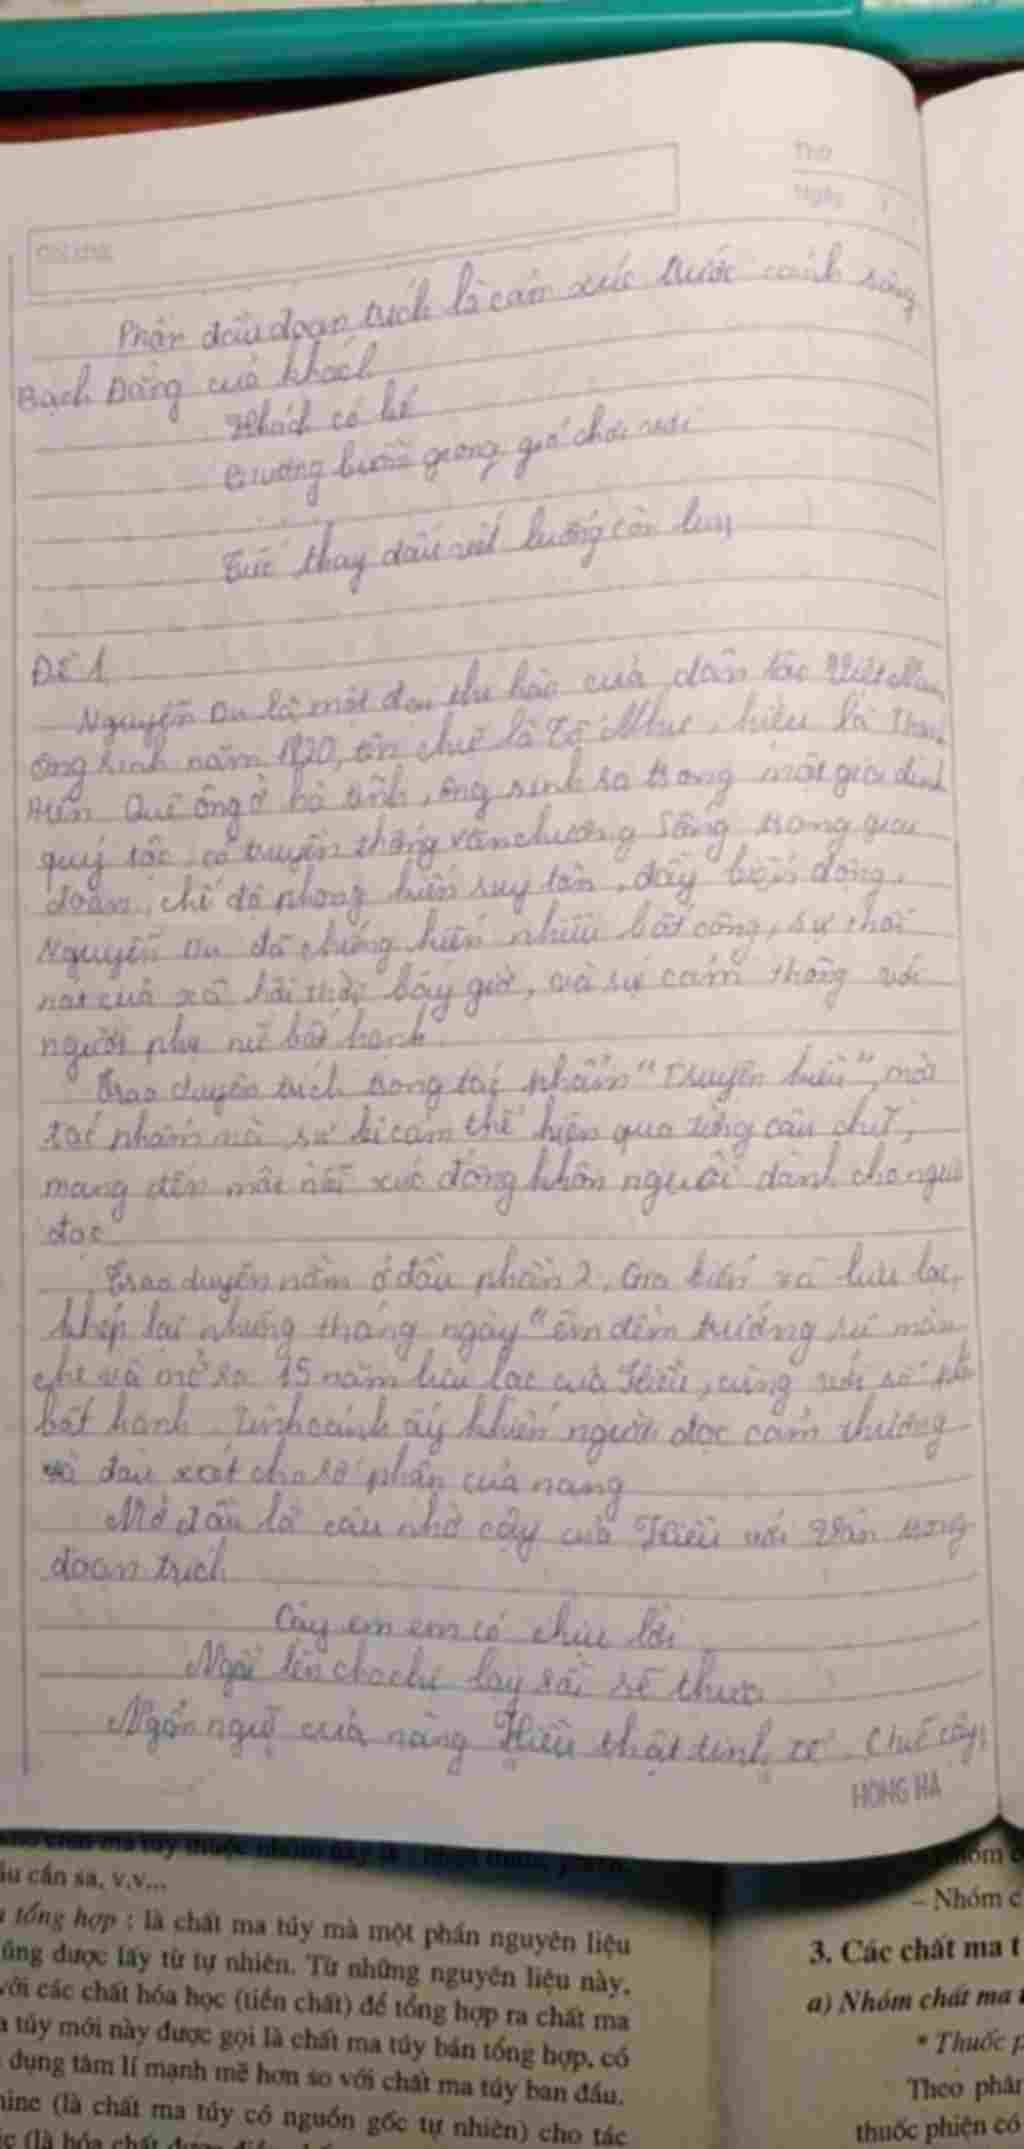 Thứ
Ngày
Phần đầu đoạn trích là cảm xúc trước cảnh sông
Bạch Đằng của khách
Khách có kẻ
Giương buồm giong gió chơi vơi
Tiếc thay dấu vết luống còn lưu
Đề 1
Nguyễn Du là một đại thi hào của dân tộc Việt Nam,
ông sinh năm 1820, tên chữ là Tố Như, hiệu là Thanh
Hiên Quê ông ở hà tĩnh, ông sinh ra trong một gia đình
quý tộc có truyền thống văn chương Sống trong giai
đoạn, chế độ phong kiến suy tàn, đầy biến động,
Nguyễn Du đã chứng kiến nhiều bất công, sự thối
nát của xã hội thời bấy giờ, và sự cảm thông với
người phụ nữ bất hạnh
Trao duyên trích trong tác phẩm "Truyện kiều", một
tác phẩm mà sự bi cảm thể hiện qua từng câu chữ,
mang đến một nỗi xúc động khôn nguôi dành cho người
đọc
Trao duyên nằm ở đầu phần 2, Gia biến và lưu lạc,
khép lại những tháng ngày "êm đềm trướng rủ màn
che và mở ra 15 năm lưu lạc của Kiều, cùng với số phận
bất hạnh. Tình cảnh ấy khiến người đọc cảm thương
và đau xót cho số phận của nàng
Mở đầu là câu nhờ cậy của Kiều với Vân trong
đoạn trích
Cậy em em có chịu lời
Ngồi lên cho chị lạy rồi sẽ thưa
Ngôn ngữ của nàng Kiều thật tinh tế. Chữ cậy,
HONG HA
âu cần sa, v.v...
tổng hợp : là chất ma túy mà một phần nguyên liệu
ũng được lấy từ tự nhiên. Từ những nguyên liệu này,
với các chất hóa học (tiền chất) để tổng hợp ra chất ma
a túy mới này được gọi là chất ma túy bán tổng hợp, có
dụng tâm lí mạnh mẽ hơn so với chất ma túy ban đầu.
hine (là chất ma túy có nguồn gốc tự nhiên) cho tác
– Nhóm c
3. Các chất ma t
a) Nhóm chất ma
* Thuốc p
Theo phân
thuốc phiện có